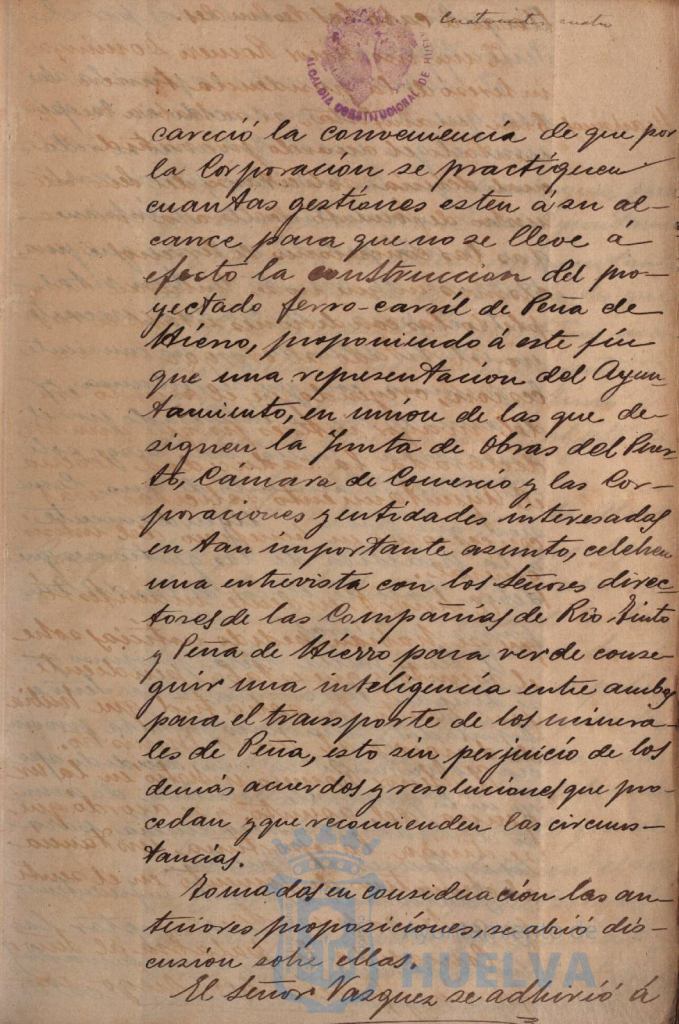 Cuatrocientos cuatro
ALCALDIA CONSTITUCIONAL DE HUELVA
careció la conveniencia de que por
la Corporación se practiquen
cuantas gestiones esten á su al-
cance para que no se lleve á
efecto la construccion del pro-
yectado ferro-carril de Peña de
Hierro, proponiendo á este fin
que una representacion del Ayun-
tamiento, en unión de las que de-
signen la Junta de Obras del Puer-
to, Cámara de Comercio y las Cor-
poraciones y entidades interesadas
en tan importante asunto, celebren
una entrevista con los Señores direc-
tores de las Compañías de Rio Tinto
y Peña de Hierro para ver de conse-
guir una inteligencia entre ambas
para el transporte de los minera-
les de Peña, esto sin perjuicio de los
demás acuerdos y resoluciones que pro-
cedan y que recomienden las circuns-
tancias.
Tomadas en consideración las an-
teriores proposiciones, se abrió dis-
cusión sobre ellas.
HUELVA
El Señor Vazquez se adhirió á